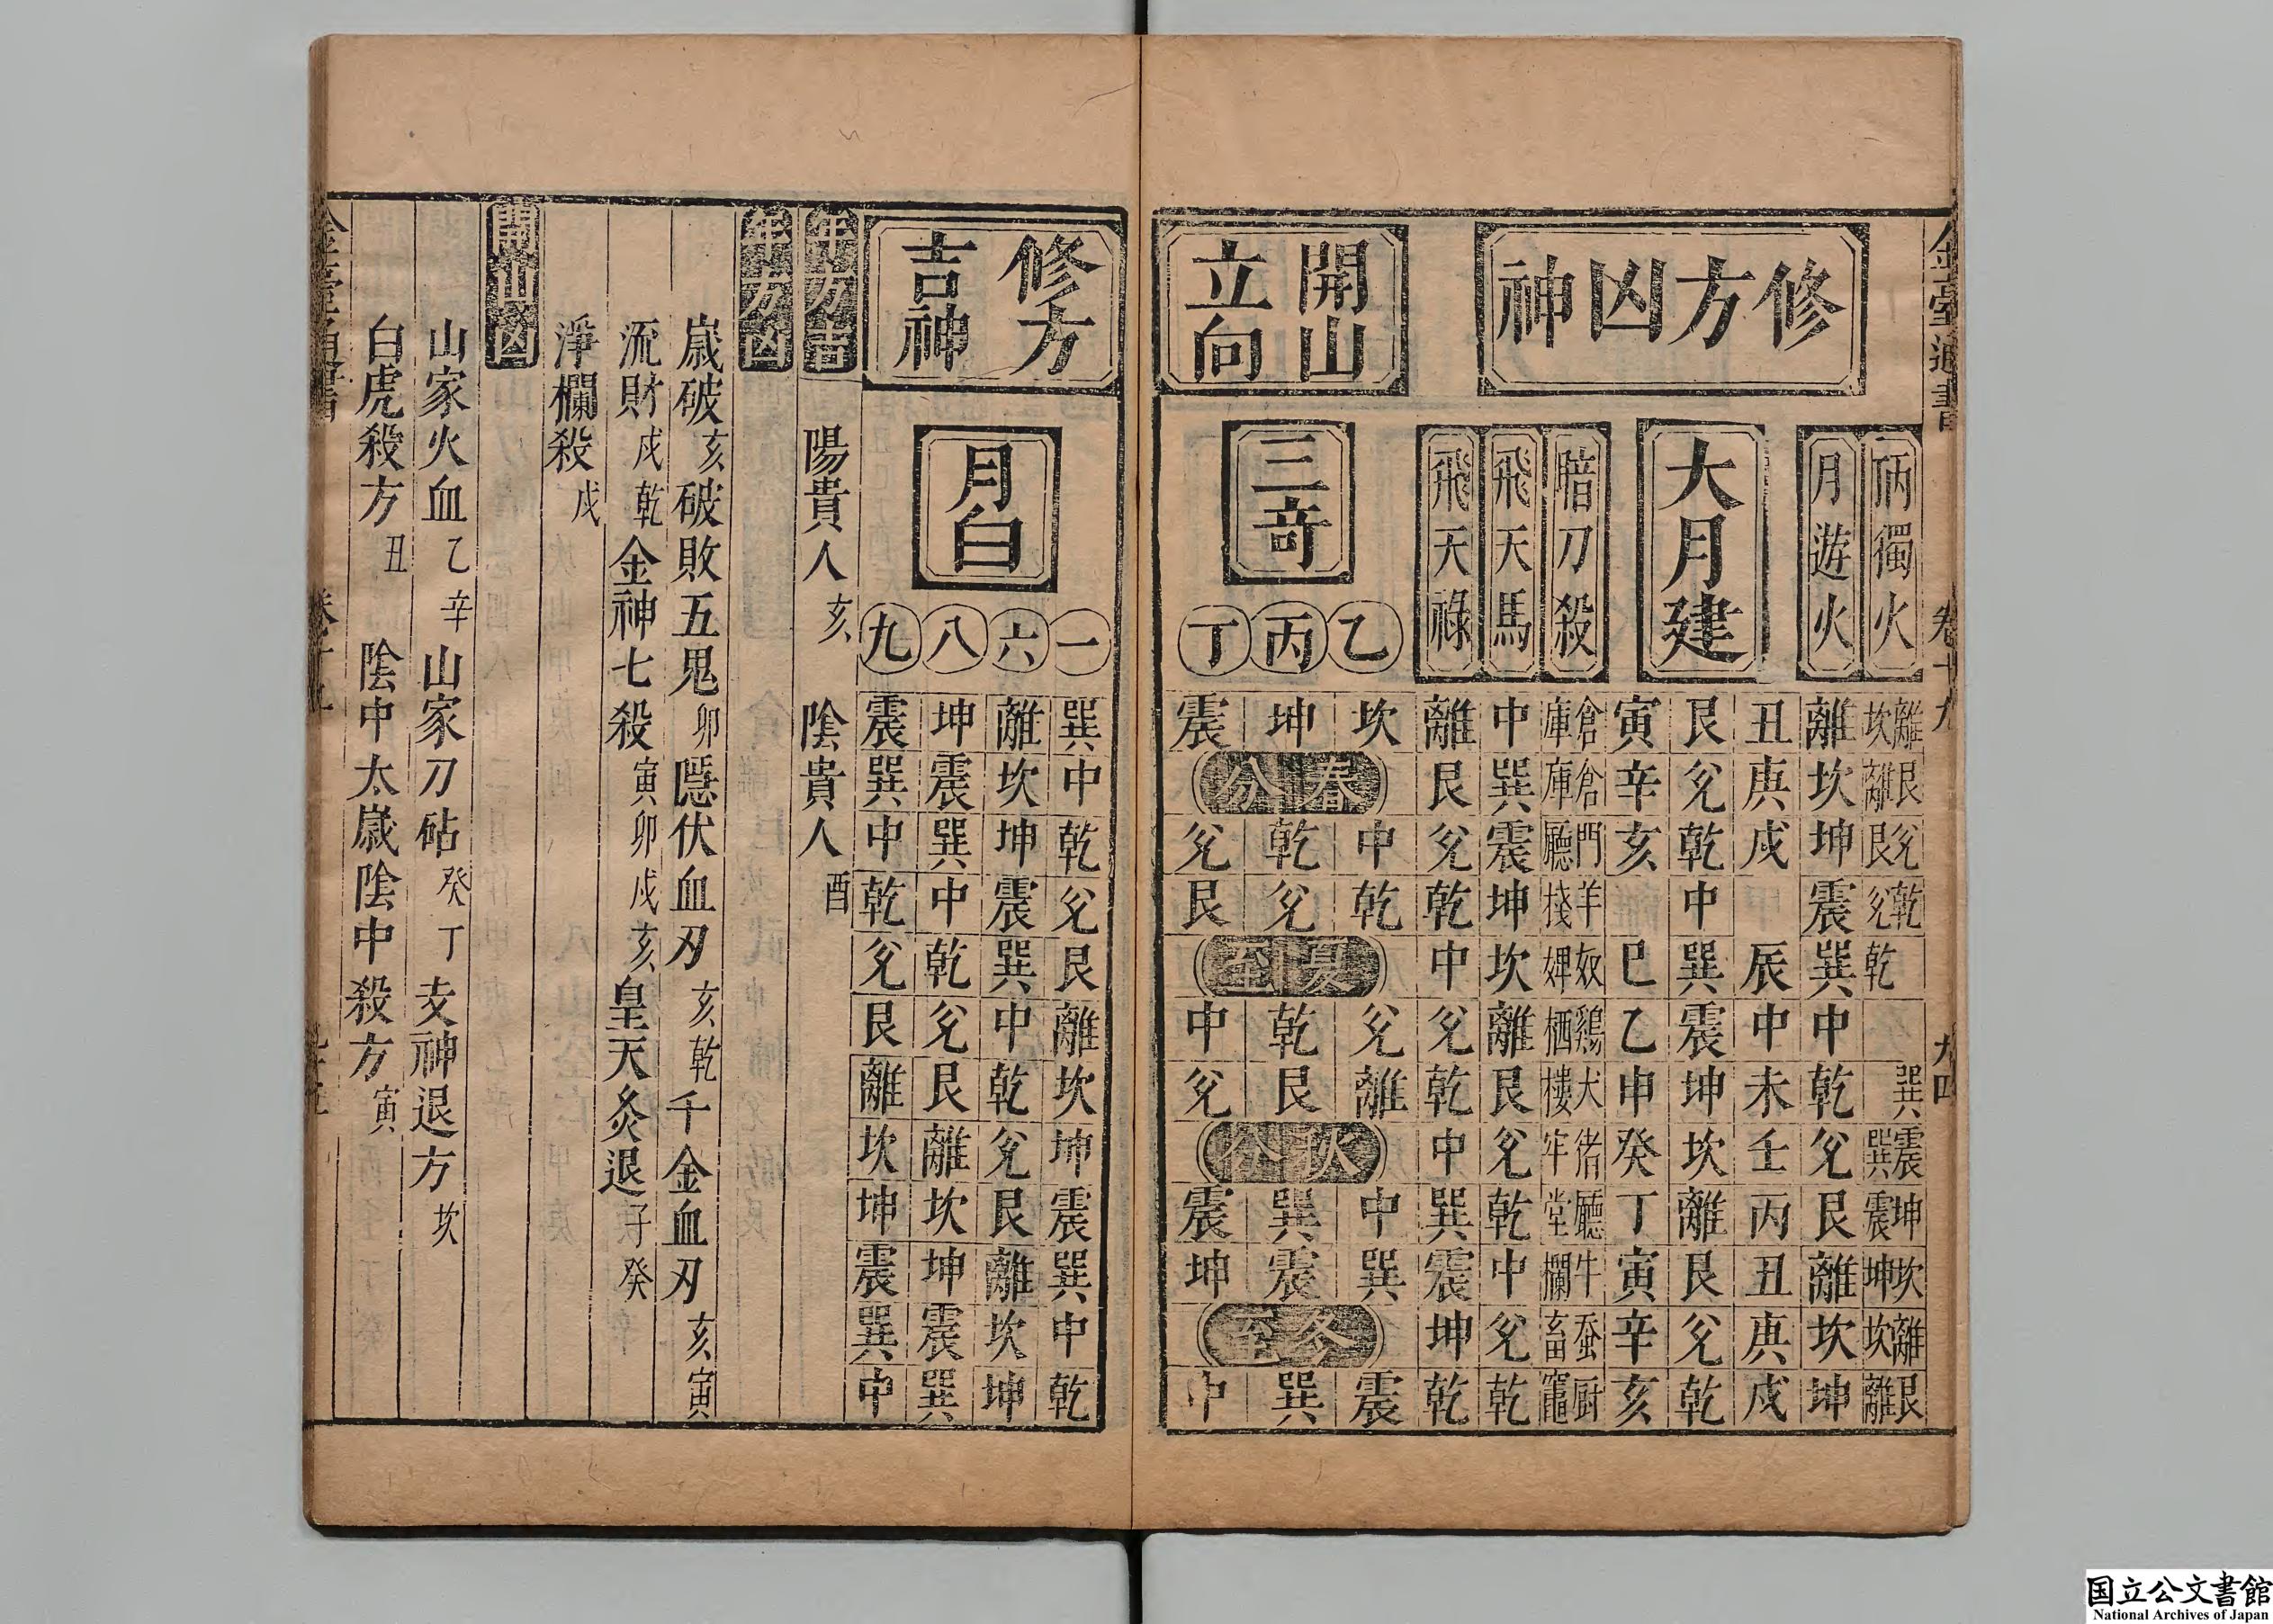 金臺通書
卷十九
九四
修方凶神
丙獨火
離坎 艮離 兊艮 乾兊 乾 巽 震巽 坤震 坎坤 離坎 艮離
月遊火
離 坎 坤 震 巽 中 乾 兊 艮 離 坎 坤
大月建
丑 庚 戍 辰 中 未 壬 丙 丑 庚 戍
艮 兊 乾 中 巽 震 坤 坎 離 艮 兊 乾
寅 辛 亥 巳 乙 申 癸 丁 寅 辛 亥
暗刀殺
倉庫 倉庫 門廳 羊棧 奴婢 鷄栖 犬樓 猪牢 廳堂 牛欄 蚕畜 厨竈
飛天馬
中 巽 震 坤 坎 離 艮 兊 乾 中 兊 乾
飛天祿
離 艮 兊 乾 中 兊 乾 中 巽 震 坤 乾
開山
立向
三奇
乙 丙 丁
坎 坤 震
春分
中 乾 兊
乾 兊 艮
夏至
兊 乾 中
離 艮 兊
秋分
中 巽 震
巽 震 坤
冬至
震 巽 中
修方
吉神
月白
一 巽 中 乾 兊 艮 離 坎 坤 震 巽 中 乾
六 離 坎 坤 震 巽 中 乾 兊 艮 離 坎 坤
八 坤 震 巽 中 乾 兊 艮 離 坎 坤 震 巽
九 震 巽 中 乾 兊 艮 離 坎 坤 震 巽 中
年方吉
陽貴人 亥 陰貴人 酉
年方凶
歲破 亥 破敗五鬼 卯 隱伏血刃 亥 乾 千金血刃 亥 寅
流財 戍 乾 金神七殺 寅 卯 戍 亥 皇天灸退 子 癸
淨欄殺 戍
開山凶
山家火血 乙 辛 山家刀砧 癸 丁 支神退方 坎
白虎殺方 丑 陰中太歲陰中殺方 寅
国立公文書館
National Archives of Japan